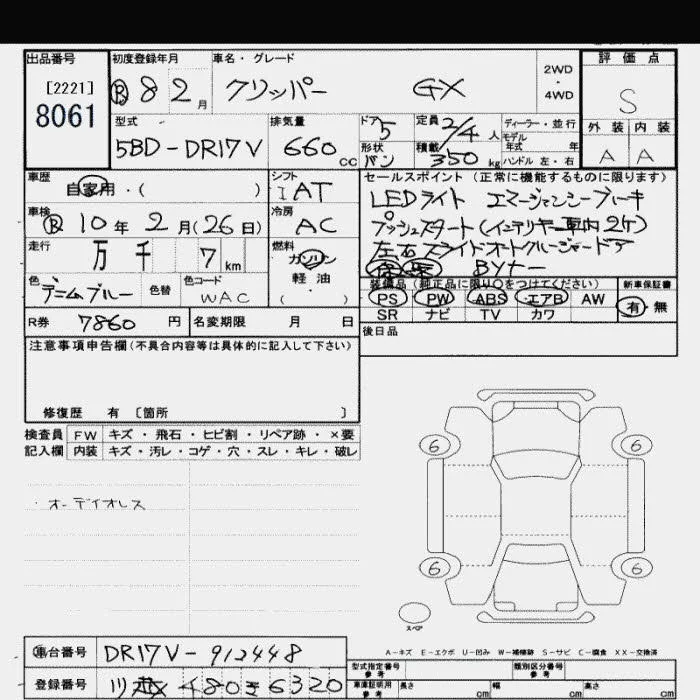 出品番号
[2221]
8061
初度登録年月
Ⓡ 8 2 月
車名・グレード
クリッパー GX
2WD
・
4WD
評価点
S
外装 内装
A A
型式
5BD-DR17V
排気量
660 cc
ドア 5
形状 バン
定員 2/4 人
積載 350 kg
ディーラー・並行
モデル
年式 年
ハンドル 左・右
車歴
自家用・( )
シフト
IAT
車検
Ⓡ 10 年 2 月(26日)
冷房
AC
走行
万 千 7 km
燃料
ガソリン
軽油
・
( )
色
デニムブルー
色替
色コード
WAC
セールスポイント (正常に機能するものに限ります)
LEDライト エマージェンシーブレーキ
プッシュスタート(インテリキー車内2ケ)
左右スライドオートクルージャードア
保 取 BYナー
装備品(純正品に限り〇をつけてください)
PS PW ABS エアB AW
SR ナビ TV カワ
新車保証書
有・無
R券 7860 円
名変期限 月 日
後日品
注意事項申告欄(不具合内容等は具体的に記入して下さい)
修復歴 有 〔箇所 〕
検査員 FW キズ・飛石・ヒビ割・リペア跡・×要
記入欄 内装 キズ・汚レ・コゲ・穴・スレ・キレ・破レ
・オーディオレス
6 6
6 6
スペア
A-キズ E-エクボ U-凹み W-補修跡 S-サビ C-腐食 XX-交換済
車台番号 DR17V-912448
登録番号
型式指定番号
参考
類別区分番号
参考
車庫証明用
参考
長さ cm 幅 cm 高さ cm